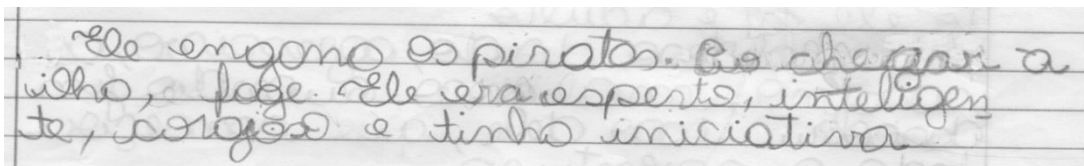 Ele engana os piratas. Ao chegar a
ilha, foge. Ele era esperto, inteligen
te, corajoso e tinha iniciativa